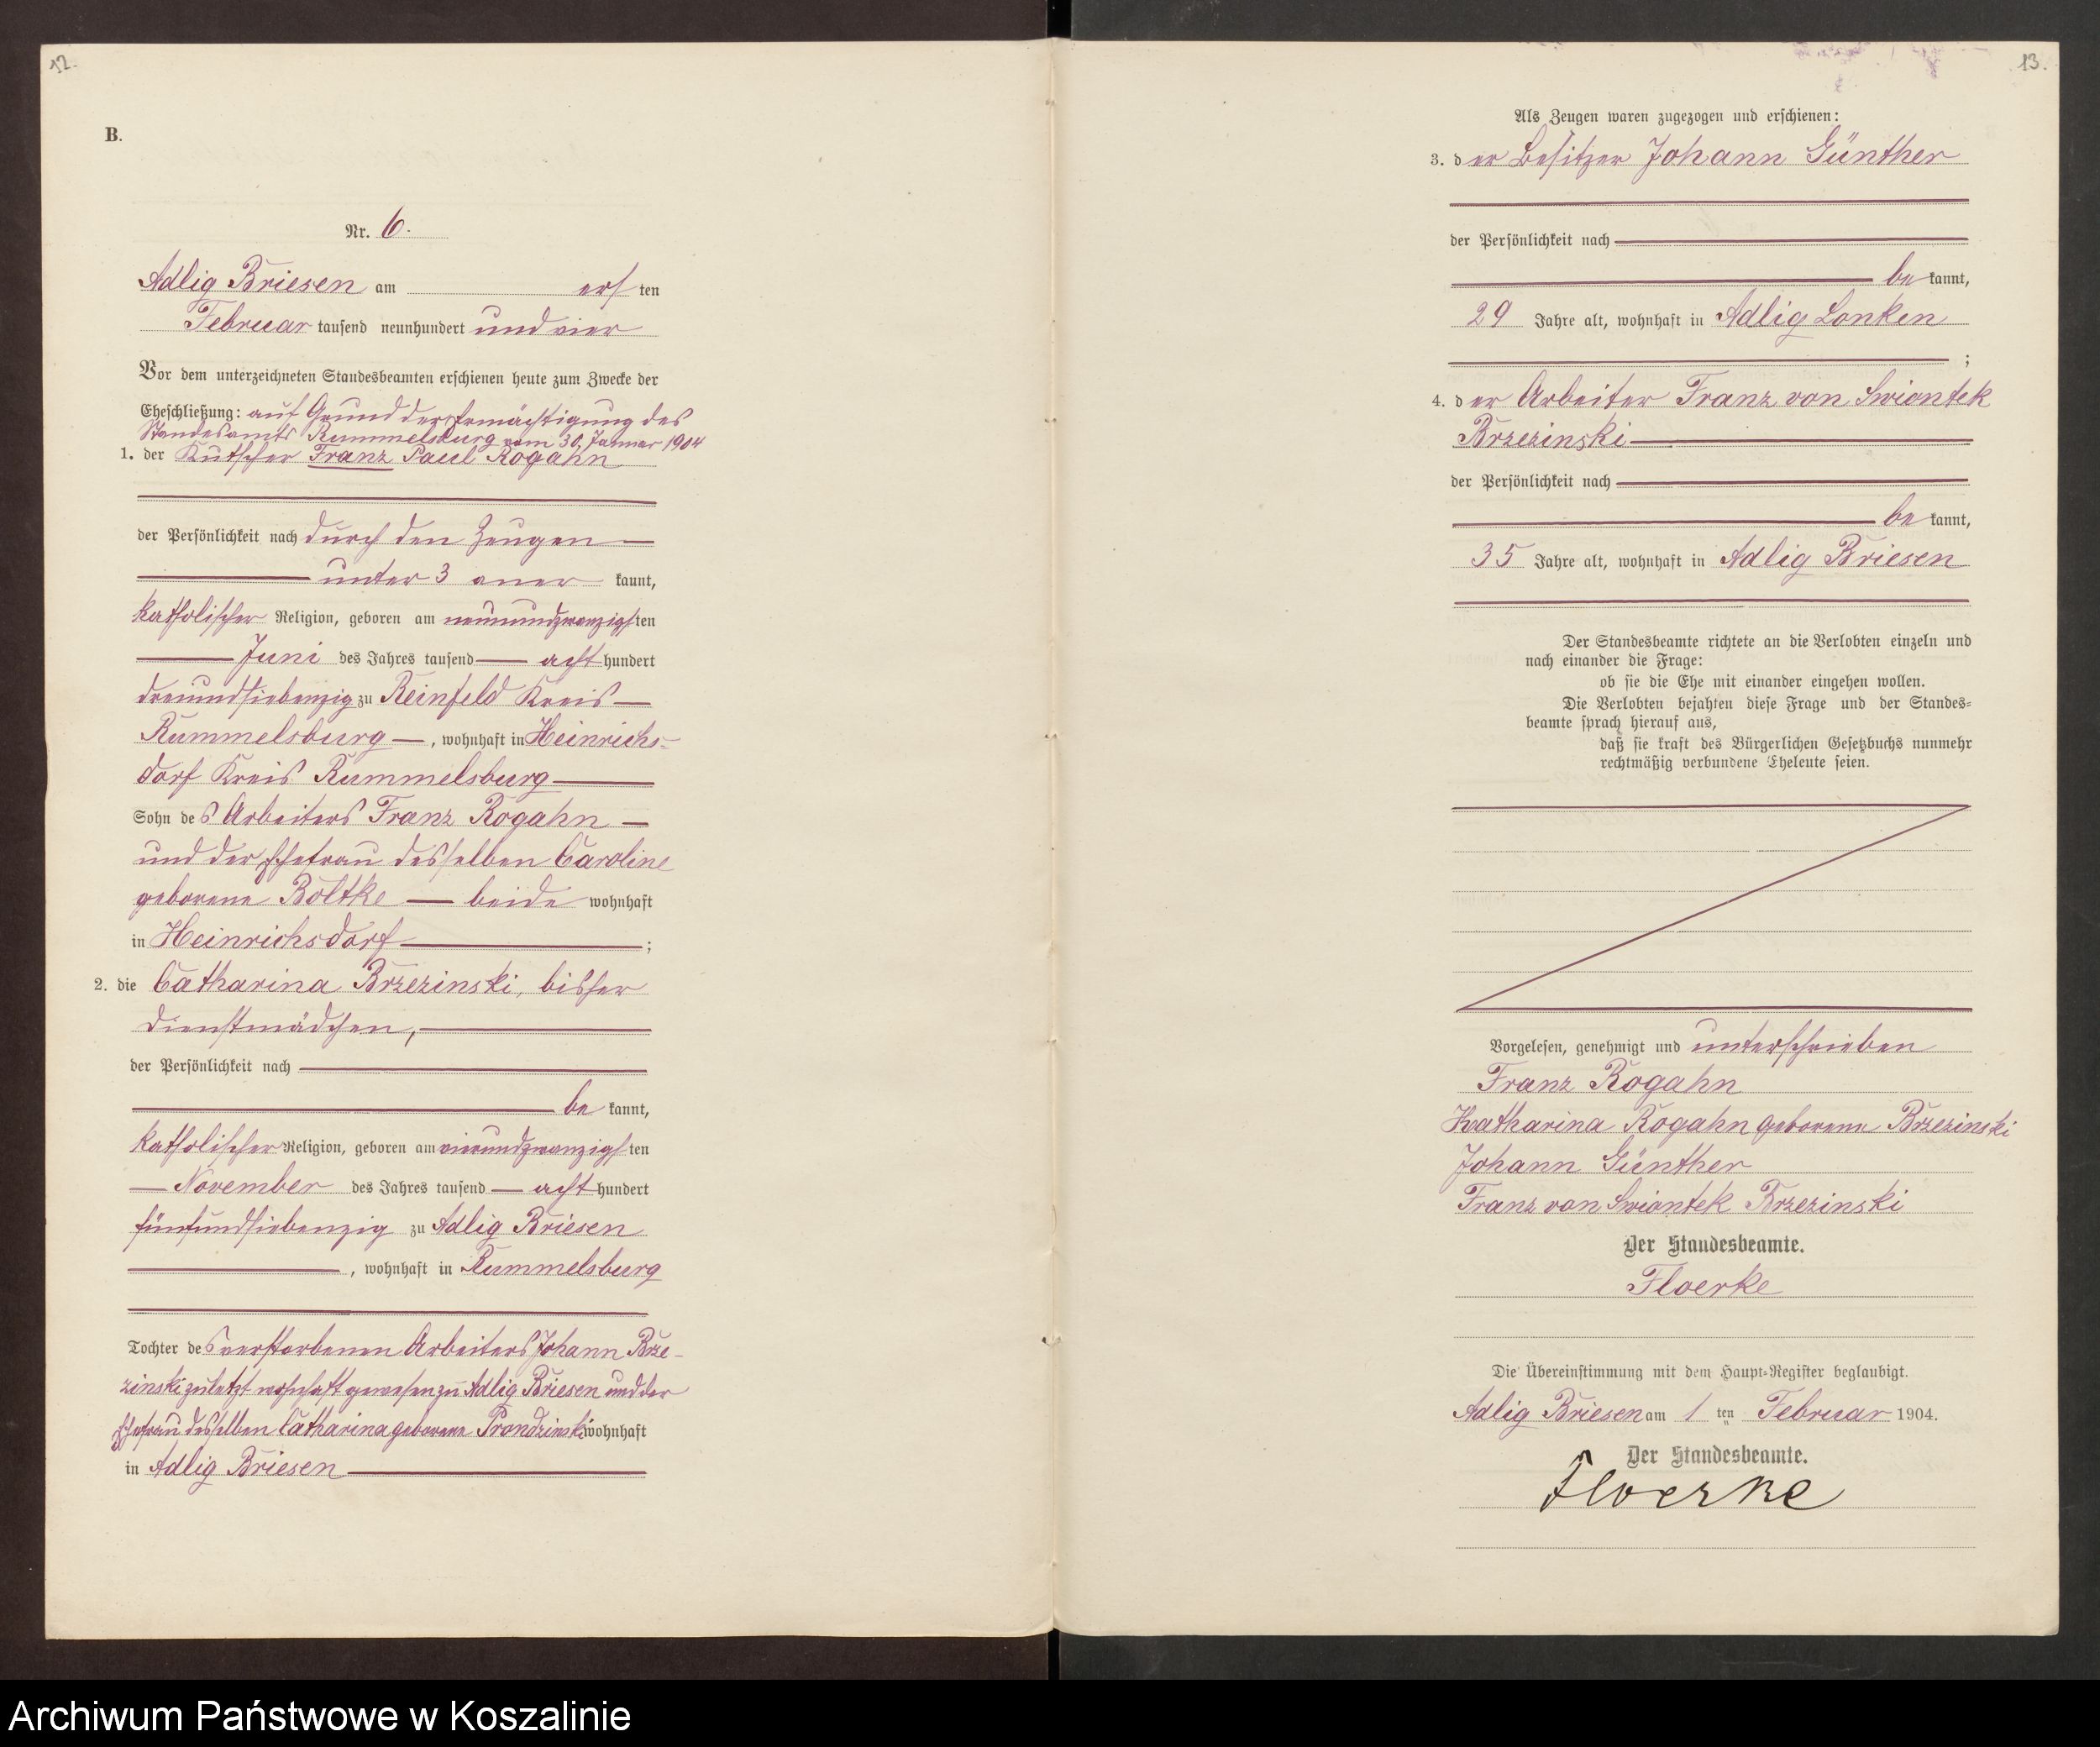 12.
B.
Nr. 6.
Adlig Briesen am ersten
Februar tausend neunhundert und vier
Vor dem unterzeichneten Standesbeamten erschienen heute zum Zwecke der
Eheschließung: auf Grund der Ermächtigung des
Standesamts Rummelsburg vom 30. Januar 1904
1. der Kutscher Franz Paul Rogahn
der Persönlichkeit nach durch den Zeugen
unter 3 aner kannt,
katholischer Religion, geboren am neunundzwanzigsten
Juni des Jahres tausend acht hundert
dreiundsiebenzig zu Reinfeld Kreis
Rummelsburg, wohnhaft in Heinrichs-
dorf Kreis Rummelsburg
Sohn des Arbeiters Franz Rogahn
und der Ehefrau desselben Caroline
geborene Boltke beide wohnhaft
in Heinrichsdorf ;
2. die Catharina Brzezinski, bisher
Dienstmädchen,
der Persönlichkeit nach
be kannt,
katholischer Religion, geboren am vierundzwanzigsten
November des Jahres tausend acht hundert
fünfundsiebenzig zu Adlig Briesen
, wohnhaft in Rummelsburg
Tochter des verstorbenen Arbeiters Johann Brze-
zinski zuletzt wohnhaft gewesen zu Adlig Briesen und der
Ehefrau desselben Catharina geborene Prondzinski wohnhaft
in Adlig Briesen
13.
Als Zeugen waren zugezogen und erschienen:
3. der Besitzer Johann Günther
der Persönlichkeit nach
be kannt,
29 Jahre alt, wohnhaft in Adlig Lonken
;
4. der Arbeiter Franz von Swiontek
Brzezinski
der Persönlichkeit nach
be kannt,
35 Jahre alt, wohnhaft in Adlig Briesen
Der Standesbeamte richtete an die Verlobten einzeln und
nach einander die Frage:
ob sie die Ehe mit einander eingehen wollen.
Die Verlobten bejahten diese Frage und der Standes-
beamte sprach hierauf aus,
daß sie kraft des Bürgerlichen Gesetzbuchs nunmehr
rechtmäßig verbundene Eheleute seien.
Vorgelesen, genehmigt und unterschrieben
Franz Rogahn
Katharina Rogahn geborene Brzezinski
Johann Günther
Franz von Swiontek Brzezinski
Der Standesbeamte.
Floerke
Die Übereinstimmung mit dem Haupt-Register beglaubigt.
Adlig Briesen am 1 ten Februar 1904.
Der Standesbeamte.
Floerke
Archiwum Państwowe w Koszalinie